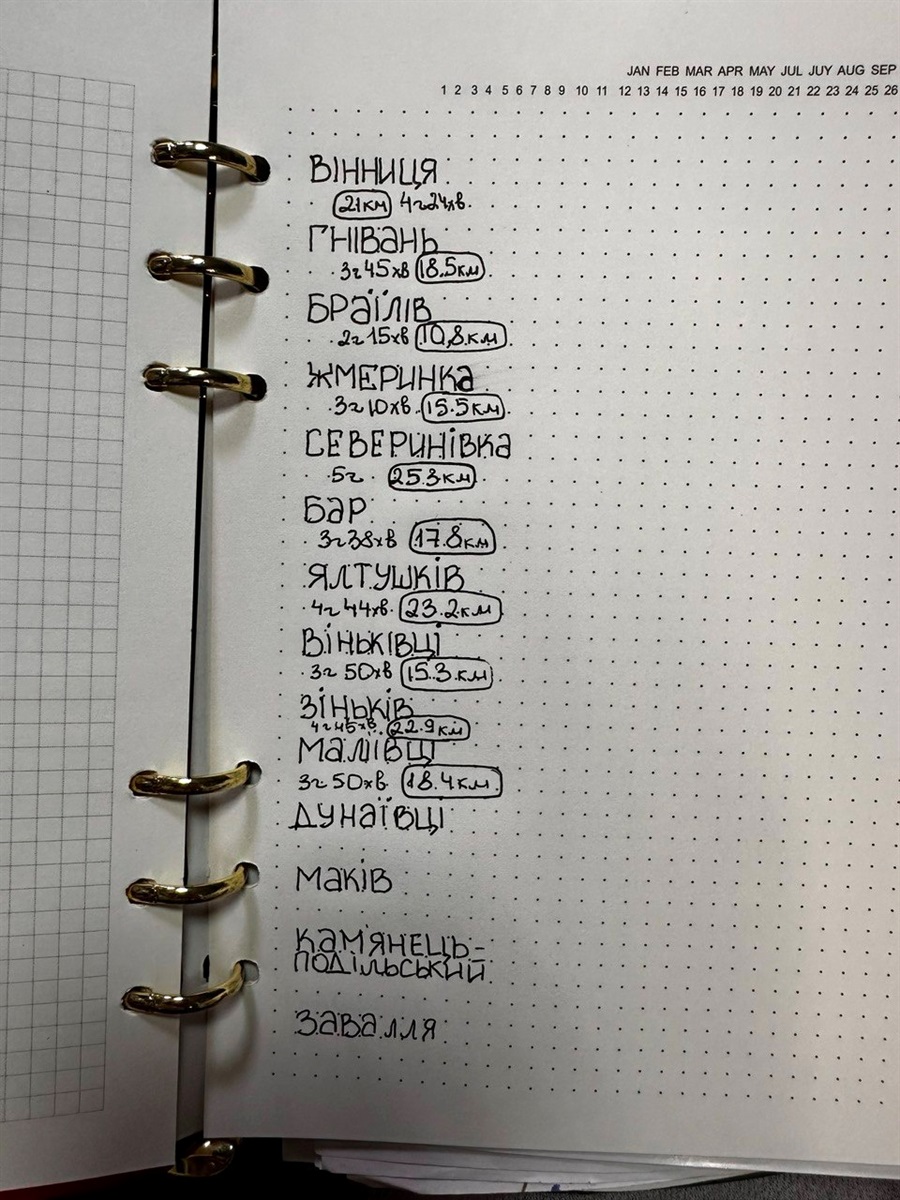 JAN FEB MAR APR MAY JUL JUY AUG SEP
1 2 3 4 5 6 7 8 9 10 11 12 13 14 15 16 17 18 19 20 21 22 23 24 25 26
ВІННИЦЯ
21км 4г24хв.
ГНІВАНЬ
3г45хв 18.5км
БРАЇЛІВ
2г15хв 10,8км
ЖМЕРИНКА
3г10хв 15.5км
СЕВЕРИНІВКА
5г 25.3км
БАР
3г38хв 17.8км
ЯЛТУШКІВ
4г44хв 23.2км
ВІНЬКІВЦІ
3г50хв 15.3км
ЗІНЬКІВ
4г45хв. 22.9км
МАЛІЇВЦІ
3г50хв 18.4км
ДУНАЇВЦІ
МАКІВ
КАМ'ЯНЕЦЬ-
ПОДІЛЬСЬКИЙ
ЗАВАЛЛЯ